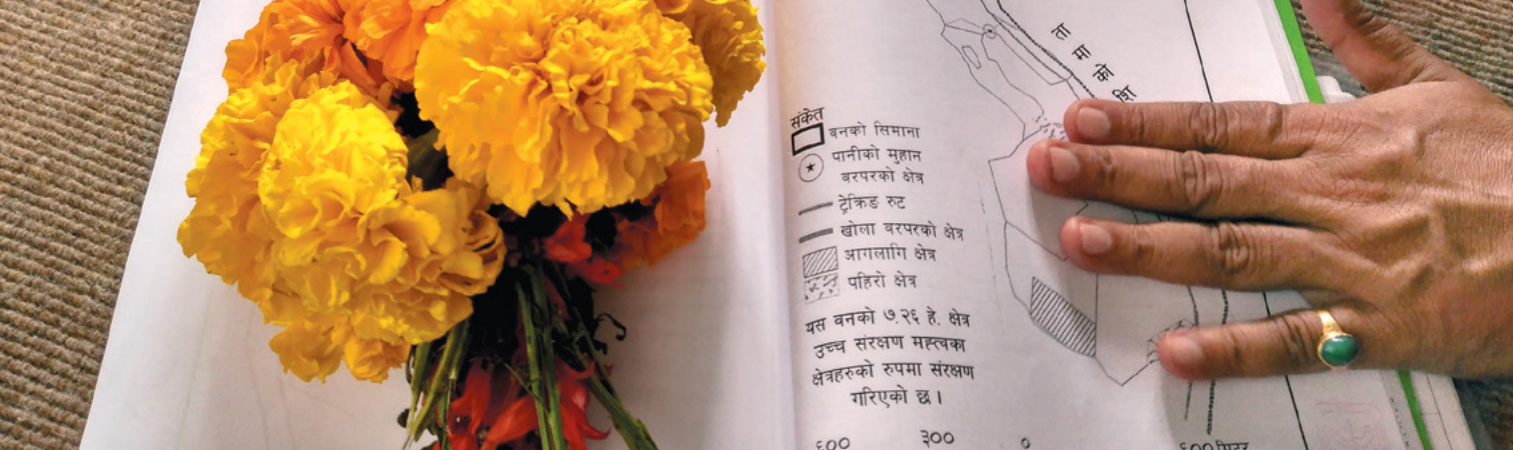 ता मा को शि
संकेत
वनको सिमाना
पानीको मुहान
वरपरको क्षेत्र
ट्रेकिङ रुट
खोला वरपरको क्षेत्र
आगलागि क्षेत्र
पहिरो क्षेत्र
यस वनको ७.२६ हे. क्षेत्र
उच्च संरक्षण महत्वका
क्षेत्रहरुको रुपमा संरक्षण
गरिएको छ।
६०० ३०० ० ६०० मिटर